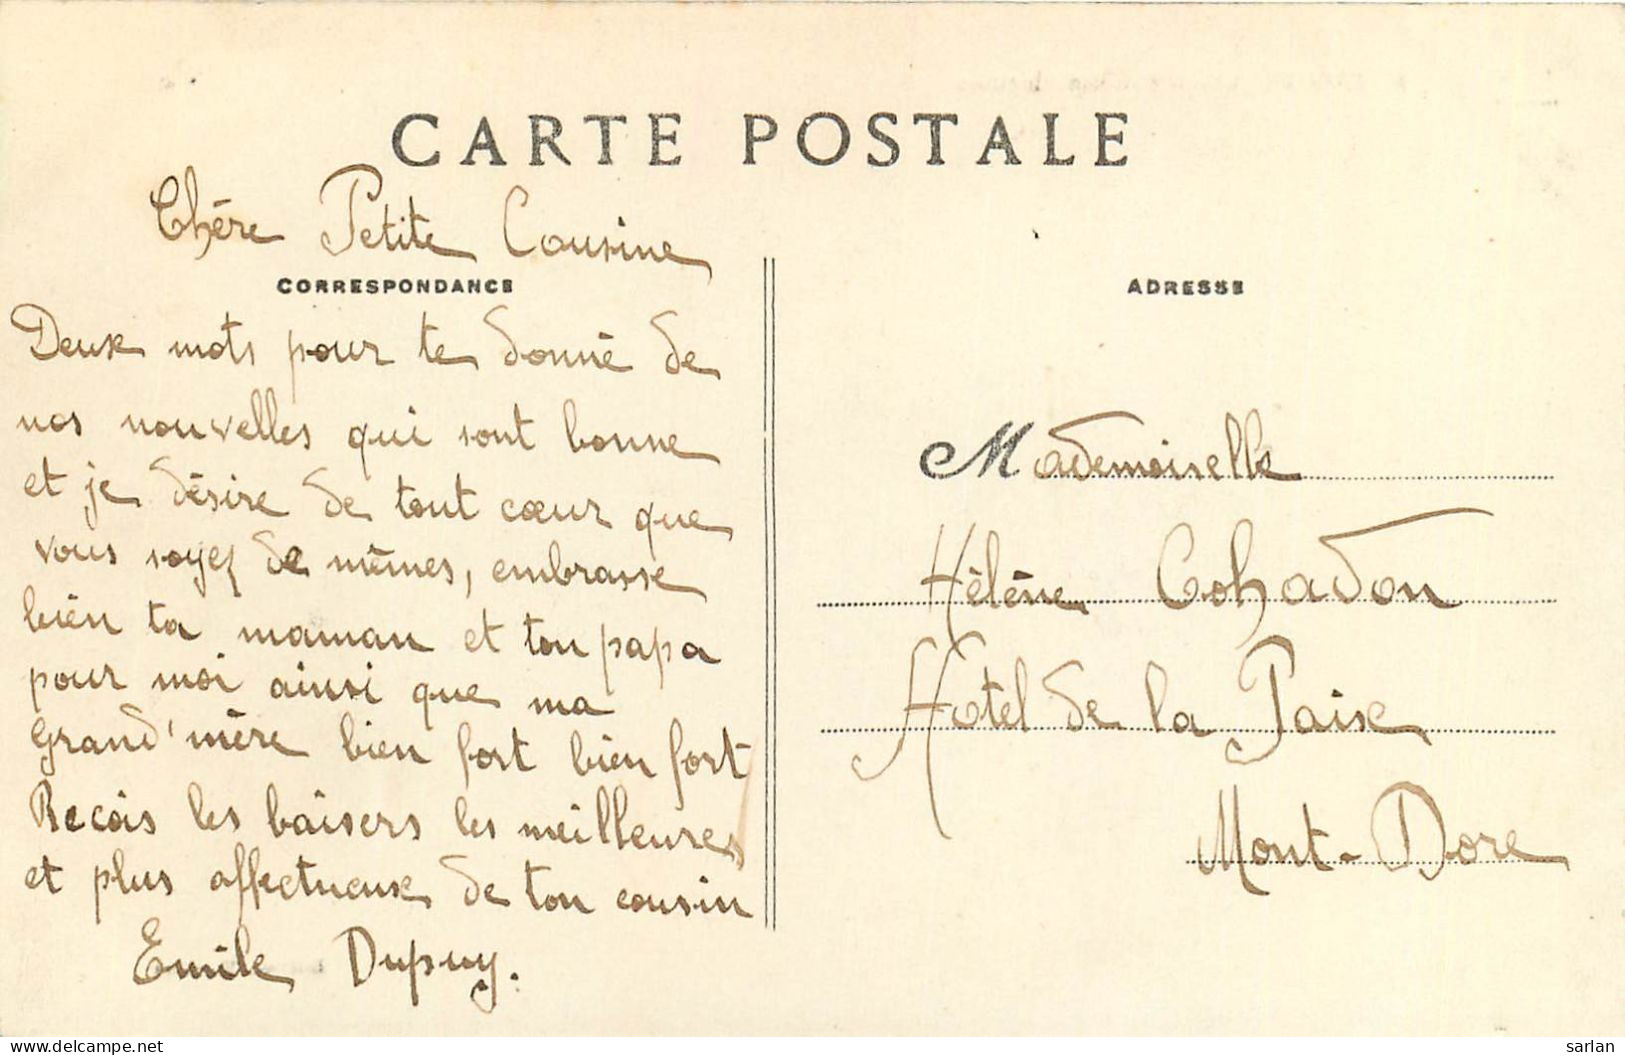 CARTE POSTALE
Chère Petite Cousine
CORRESPONDANCE
Deux mots pour te donné de
nos nouvelles qui sont bonne
et je désire de tout cœur que
vous soyez de mêmes, embrasse
bien ta maman et ton papa
pour moi ainsi que ma
Grand'mère bien fort bien fort
Recois les baisers les meilleures
et plus affectueux de ton cousin
Emile Dupuy.
ADRESSE
Mademoiselle
Hélène Cohadon
Hotel de la Paix
Mont-Dore
delcampe.net
sarlan